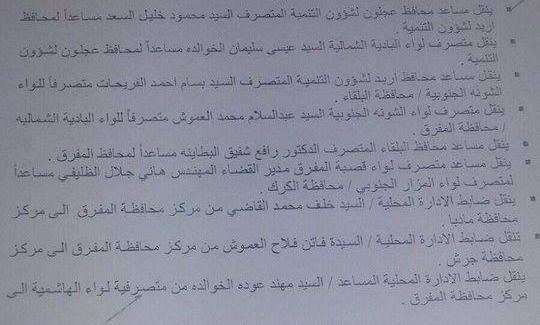 ينقل مساعد محافظ عجلون لشؤون التنمية المتصرف السيد محمود خليل السعد مساعداً لمحافظ
اربد لشؤون التنمية .
ينقل متصرف لواء البادية الشمالية السيد عيسى سليمان الخوالده مساعداً لمحافظ عجلون لشؤون
التنمية .
ينقل مساعد محافظ اربد لشؤون التنمية المتصرف السيد بسام احمد الفريحات متصرفاً للواء
الشونه الجنوبية / محافظة البلقاء .
ينقل متصرف لواء الشونه الجنوبية السيد عبدالسلام محمد العموش متصرفاً للواء البادية الشماليه
/ محافظة المفرق .
ينقل مساعد محافظ البلقاء المتصرف الدكتور رافع شفيق البطاينه مساعداً لمحافظ المفرق .
ينقل مساعد متصرف لواء قصبة المفرق مدير القضاء المهندس هاني جلال الظليفي مساعداً
لمتصرف لواء المزار الجنوبي / محافظة الكرك .
ينقل ضابط الادارة المحلية / السيد خلف محمد القاضي من مركز محافظة المفرق الى مركز
محافظة مادبا .
تنقل ضابط الادارة المحلية / السيدة فاتن فلاح العموش من مركز محافظة المفرق الى مركز
محافظة جرش .
ينقل ضابط الادارة المحلية المساعد / السيد مهند عوده الخوالده من متصرفية لواء الهاشمية الى
مركز محافظة المفرق .